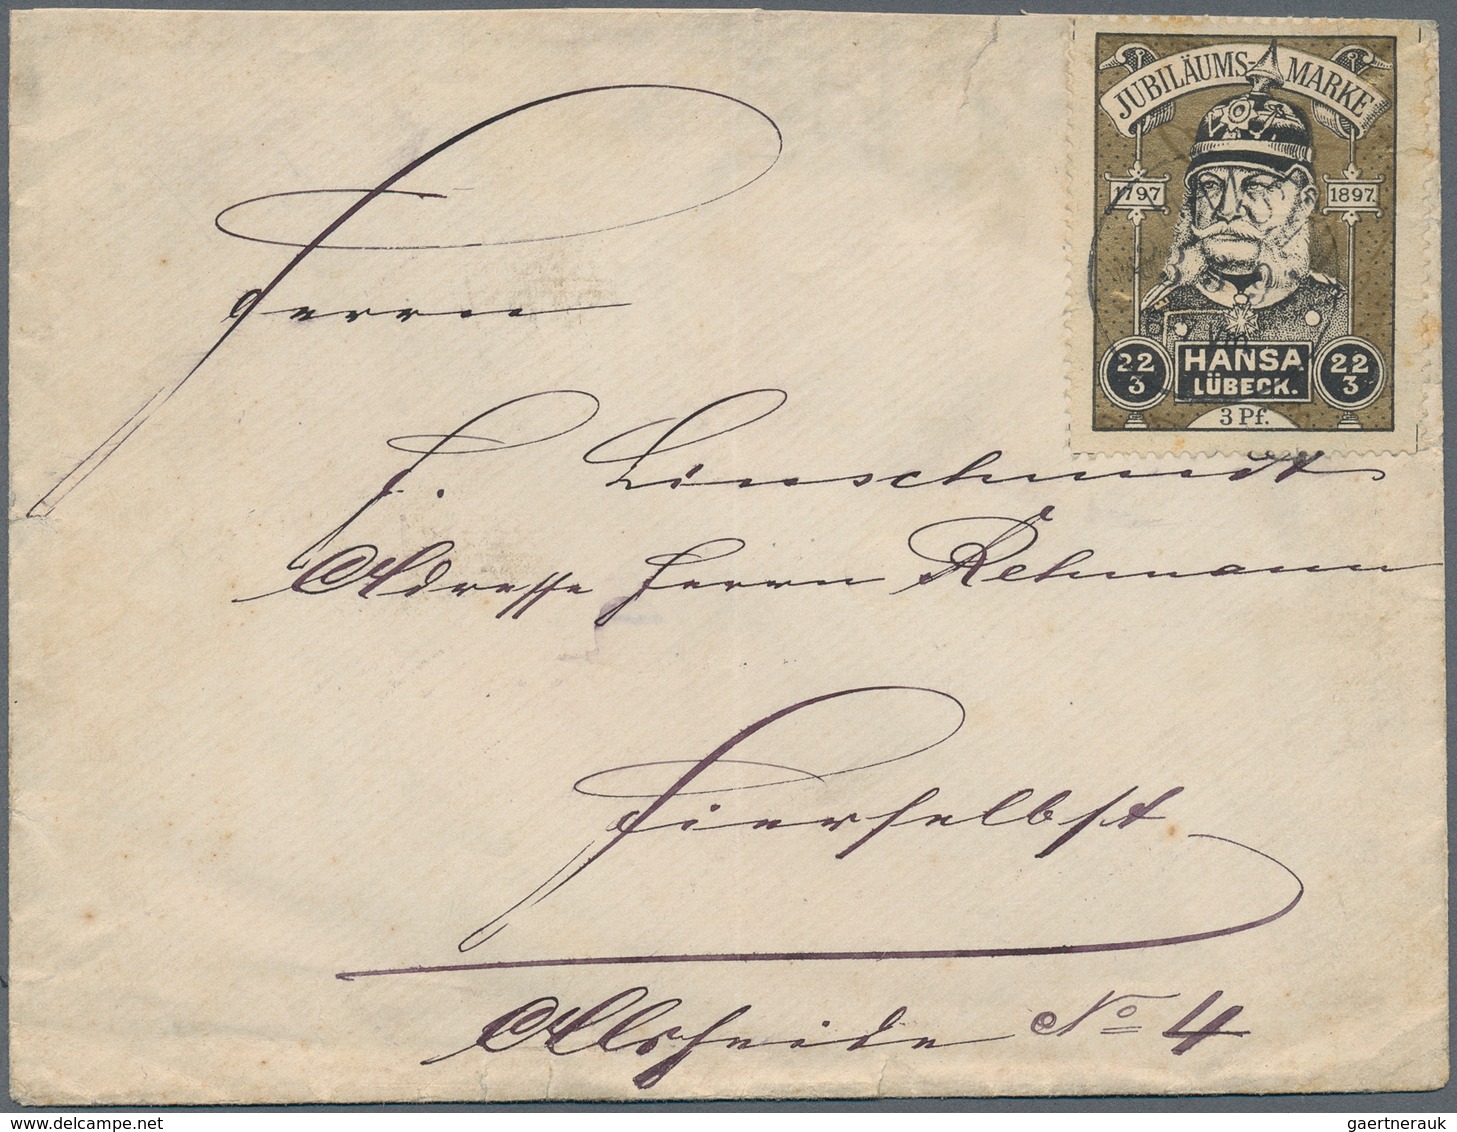 JUBILÄUMS-MARKE
1797 1897
HANSA
LÜBECK.
22/3 22/3
3 Pf.
Herrn
F. Linschmidt
Adresse Herrn Rehmann
Hierselbst
No 4
gaertnerauk